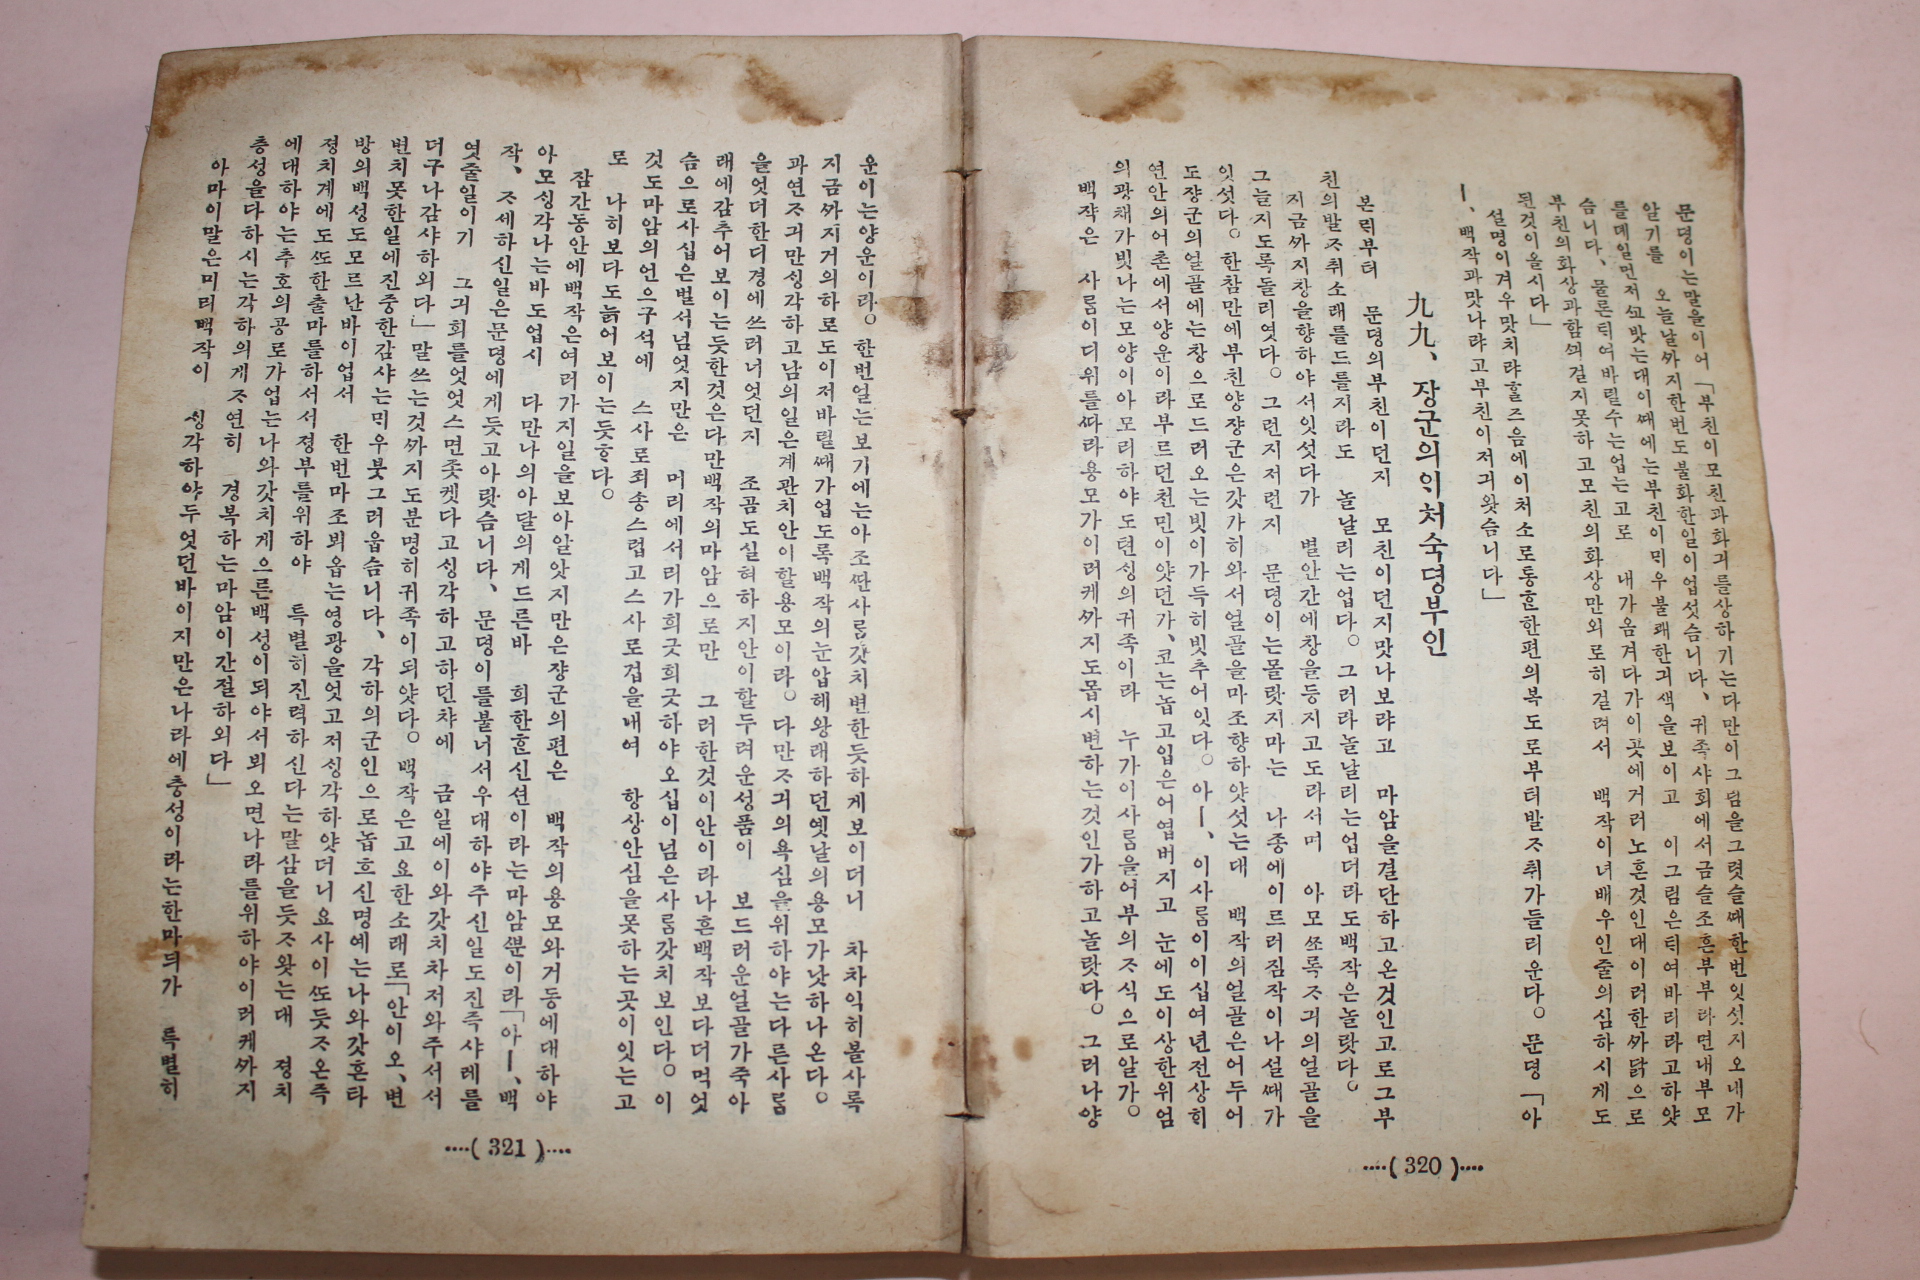 문뎡이는말을이어「부친이모친과화긔를상하기는다만이그림을그렷슬ᄯᅢ한번잇섯지오내가
알기를 오늘날ᄭᅡ지한번도불화한일이업섯슴니다、귀족샤회에서금슬조흔부부라면내부모
를뎨일먼저ᄭᅩᆸ밧는대이ᄯᅢ에는부친이ᄆᆡ우불쾌한긔색을보이고 이그림은ᄯᅴ여바리라고하얏
슴니다、물론ᄯᅴ여바릴수는업는고로 내가옴겨다가이곳에거러노흔것인대이러한ᄭᅡ닭으로
부친의화상과함ᄭᅴ걸지못하고모친의화상만외로히걸려서 백작이녀배우인줄의심하시게도
된것이올시다」
설명이겨우맛치랴ᄒᆞᆯ즈음에이처소로통ᄒᆞᆫ한편의복도로부터발ᄌᆞ취가들리운다。문뎡「아
ㅣ、백작과맛나랴고부친이저긔왓슴니다」
九九、장군의의처숙뎡부인
본ᄅᆡ부터 문뎡의부친이던지 모친이던지맛나보랴고 마암을결단하고온것인고로그부
친의발ᄌᆞ취소래를드를지라도 놀날리는업다。그러라놀날리는업더라도백작은놀랏다。
지금ᄭᅡ지창을향하야서잇섯다가 별안간에창을등지고도라서며 아모ᄶᅩ록ᄌᆞ긔의얼골을
그늘지도록돌리엿다。그런지저런지 문뎡이는몰랏지마는 나종에이르러짐작이나설ᄯᅢ가
잇섯다。한참만에부친양쟝군은갓가히와서얼골을마조향하얏섯는대 백작의얼골은어두어
도쟝군의얼골에는창으로드러오는빗이가득히빗추어잇다。아ㅣ、이사ᄅᆞᆷ이이십여년전상히
연안의어촌에서양운이라부르던천민이얏던가、코는놉고입은어엽버지고 눈에도이상한위엄
의광채가빗나는모양이아모리하야도텬성의귀족이라 누가이사ᄅᆞᆷ을어부의ᄌᆞ식으로알가。
백작은 사ᄅᆞᆷ이디위를ᄯᅡ라용모가이러케ᄭᅡ지도몹시변하는것인가하고놀랏다。그러나양
운이는양운이라。한번얼는보기에는아조ᄯᅡᆫ사ᄅᆞᆷ갓치변한듯하게보이더니 차차익히볼사록
지금ᄭᅡ지거의하로도이저바릴ᄯᅢ가업도록백작의눈압헤왕래하던옛날의용모가낫하나온다。
과연ᄌᆞ긔만ᄉᆡᆼ각하고남의일은계관치안이할용모이라。다만ᄌᆞ긔의욕심을위하야는다른사ᄅᆞᆷ
을엇더한디경에쓰러너엇던지 조곰도실혀하지안이할두려운성품이 보드러운얼골가죽아
래에감추어보이는듯한것은다만백작의마암으로만 그러한것이안이라나흔백작보다더먹엇
슴으로사십은벌서넘엇지만은 머리에서리가희긋희긋하야오십이넘은사ᄅᆞᆷ갓치보인다。이
것도마암의언으구석에 스사로죄송스럽고스사로겁을내여 항상안심을못하는곳이잇는고
로 나히보다도늙어보이는듯ᄒᆞ다。
잠간동안에백작은여러가지일을보아알앗지만은쟝군의편은 백작의용모와거동에대하야
아모ᄉᆡᆼ각나는바도업시 다만나의아달의게드른바 희한ᄒᆞᆫ신션이라는마암ᄲᅮᆫ이라「아ㅣ、백
작、ᄌᆞ세하신일은문뎡에게듯고아랏슴니다、문뎡이를불너서우대하야주신일도진즉샤례를
엿줄일이기 그긔회를엇엇스면좃켓다고ᄉᆡᆼ각하고하던챠에 금일에이와갓치차저와주서서
더구나감샤하외다」말쓰는것ᄭᅡ지도분명히귀족이되얏다。백작은고요한소래로「안이오、변
변치못한일에진중한감샤는ᄆᆡ우붓그러웁슴니다、각하의군인으로놉흐신명예는나와갓흔타
방의백성도모르난바이업서 한번마조뵈옵는영광을엇고저ᄉᆡᆼ각하얏더니요사이ᄯᅩ듯ᄌᆞ온즉
정치계에도ᄯᅩ한출마를하서서졍부를위하야 특별히진력하신다는말삼을듯ᄌᆞ왓는대 졍치
에대하야는추호의공로가업는나와갓치게으른백성이되야서뵈오면나라를위하야이러케ᄭᅡ지
충성을다하시는각하의게ᄌᆞ연히 경복하는마암이간절하외다」
아마이말은미리백작이 ᄉᆡᆼ각하야두엇던바이지만은나라에충성이라는한마듸가 특별히
····( 320 )····
····( 321 )····